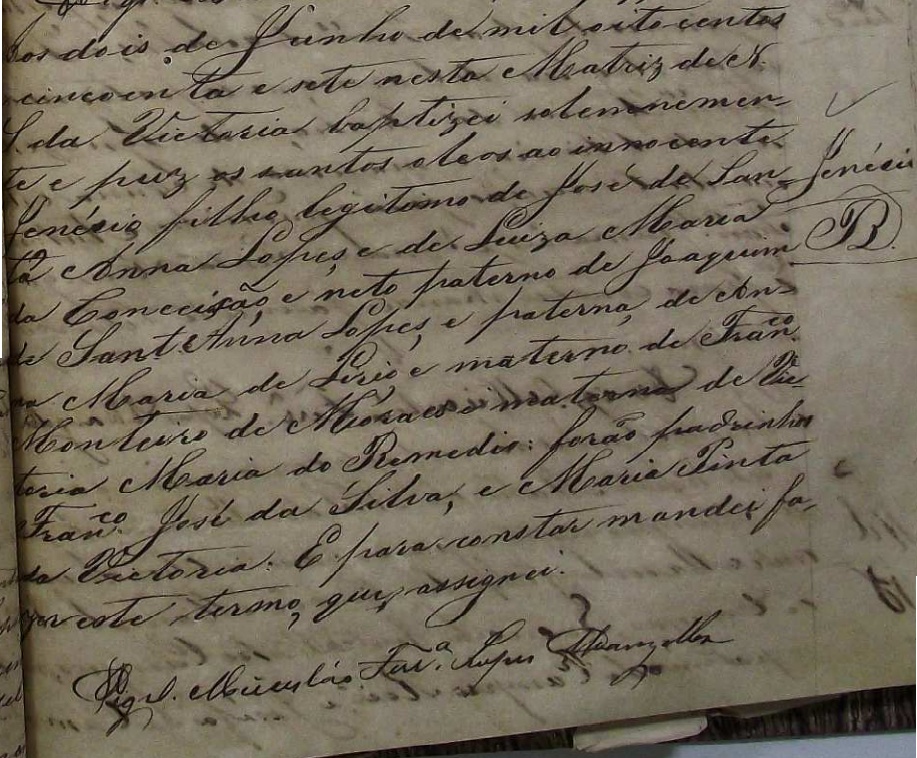 Aos dois de Junho de mil oito centos
cincoenta e sete nesta Matriz de N.
S. da Victoria baptizei solemnemen-
te e puz os santos oleos ao innocente
Jenésio filho legitimo de José de San-
ta Anna Lopes, e de Luiza Maria
da Conceição, e neto paterno de Joaquim
de Sant'Anna Lopes, e paterna, de An-
na Maria de Lirio, e materno de Fran.co
Monteiro de Moraes e materna de Vic-
toria Maria do Remedio: forão padrinhos
Fran.co José da Silva, e Maria Pinta
da Victoria: E para constar mandei fa-
zer este termo, que, assignei.
Jenésio
B.